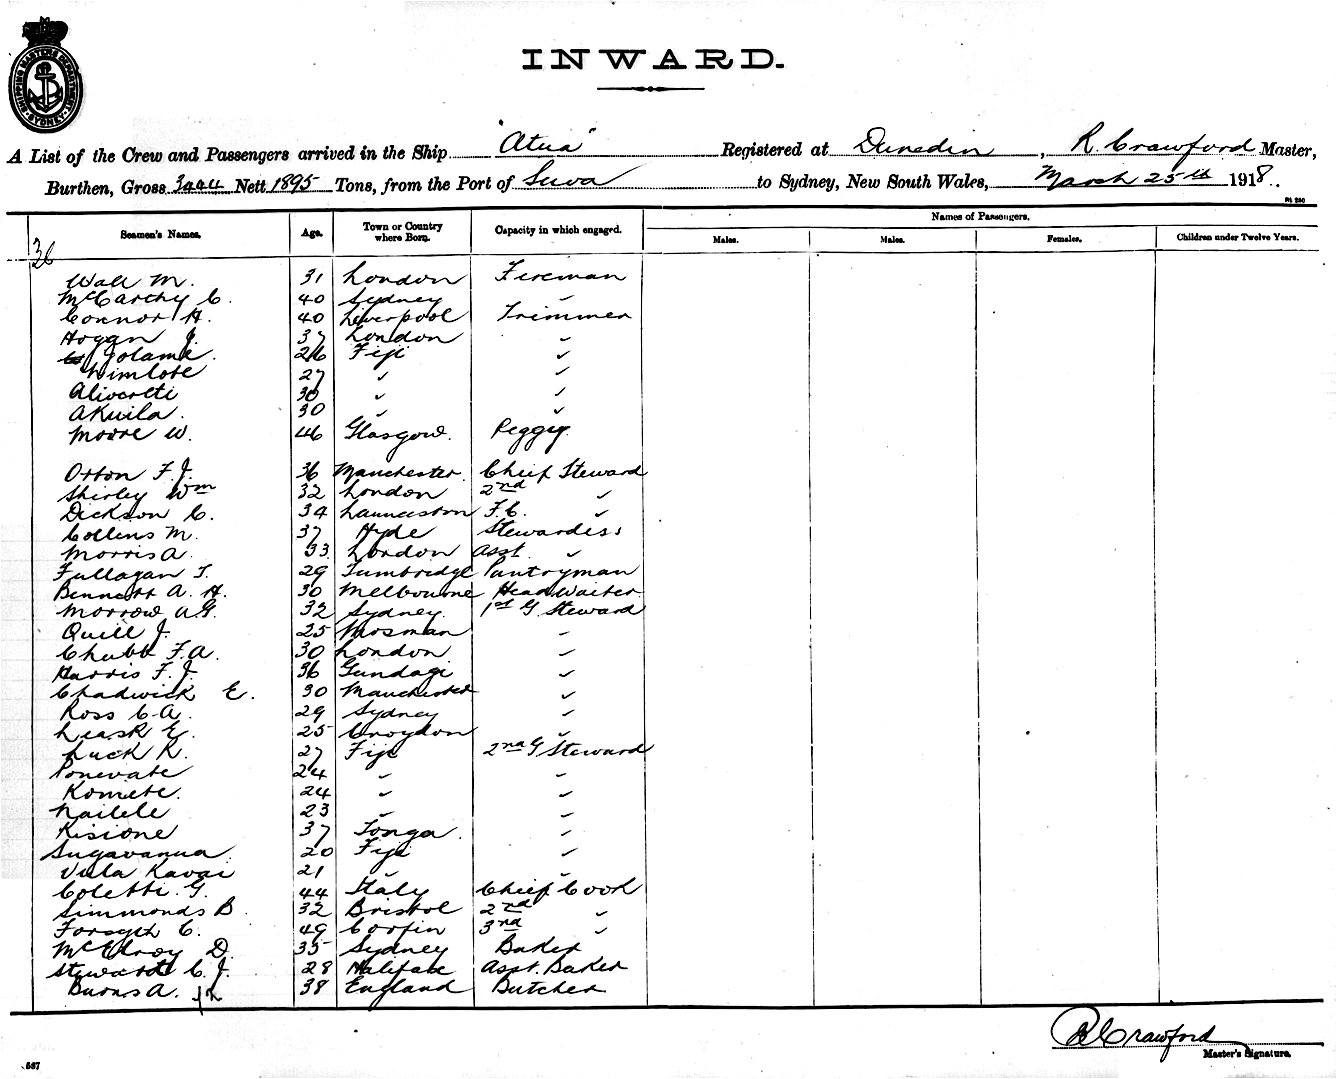 SHIPPING MASTERS DEPARTMENT SYDNEY
INWARD.
A List of the Crew and Passengers arrived in the Ship "Atua" Registered at Dunedin, R. Crawford Master,
Burthen, Gross 3444 Nett 1895 Tons, from the Port of Suva to Sydney, New South Wales, March 25th 1918.
Names of Passengers.
Seamen's Names. Age. Town or Country where Born. Capacity in which engaged. Males. Males. Females. Children under Twelve Years.
36
Wall M. 31 London Fireman
McCarthy C. 40 Sydney "
Connor H. 40 Liverpool Trimmer
Hogan J. 37 London "
Golama. 26 Fiji "
27 " "
30 " "
Akuila. 30 " "
Moore W. 46 Glasgow. Peggy
Orton F. J. 36 Manchester. Chief Steward
Shirley Wm 32 London 2nd "
Dickson C. 34 Launceston F.C. "
Collens M. 37 Hyde Stewardess
Morris A. 33 London Asst. "
Fullagan T. 29 Tumbridge Pantryman
Bennett A. H. 30 Melbourne Head Waiter
Morrow A.G. 32 Sydney. 1st G Steward
Quill J. 25 Mosman "
Chubb F.A. 30 London "
Harris F. J. 36 Gundagi "
Chadwick E. 30 Manchester "
Ross C.A. 29 Sydney "
Leask E. 25 Croydon "
Luck K. 27 Fiji 2nd G Steward
Ponevate 24 " "
Komete. 24 " "
Nailele 23 " "
Kisione 37 Tonga. "
Sugavanua. 20 Fiji "
Vula Kavai 21 " "
Coletti. G. 44 Italy Chief Cook
Simmonds B. 32 Bristol 2nd "
Forsyth C. 49 3rd "
McElroy D. 35 Sydney Baker
Steward C. J. 28 Halifax Asst. Baker
Burns A. 38 England Butcher
R Crawford
Master's Signature.